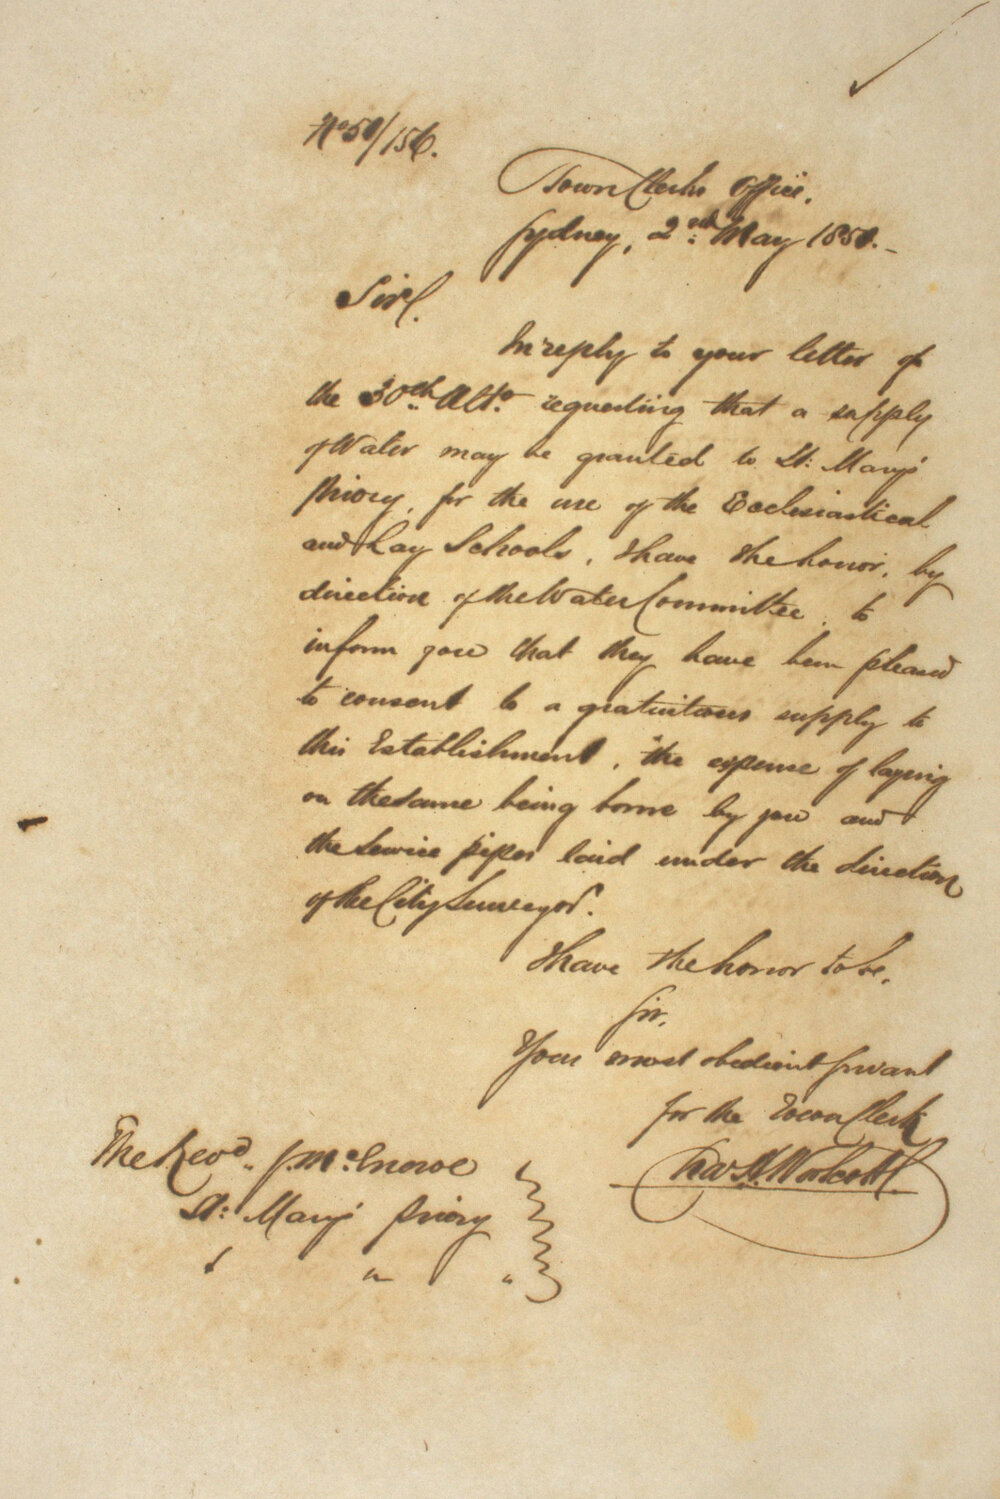 No 50/156.
Town Clerks Office,
Sydney, 2nd May 1850.
Sir,
In reply to your letter of
the 30th Ulto. requesting that a supply
of Water may be granted to St: Mary's
Priory, for the use of the Ecclesiastical
and Lay Schools, I have the honor, by
direction of the Water Committee, to
inform you that they have been pleased
to consent to a gratuitous supply to
this Establishment, the expense of laying
on the same being borne by you and
the service pipes laid under the direction
of the City Surveyor.
I have the honor to be,
Sir,
Your most obedient Servant
for the Town Clerk
Chas H. Woolcott.
The Revd. J. Mc
St: Mary's Priory